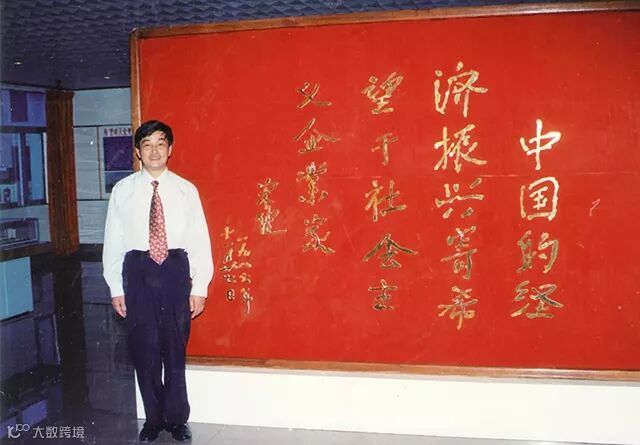 中国的经
济振兴寄希
望于社会主
义企业家
一九八六年
大数跨境